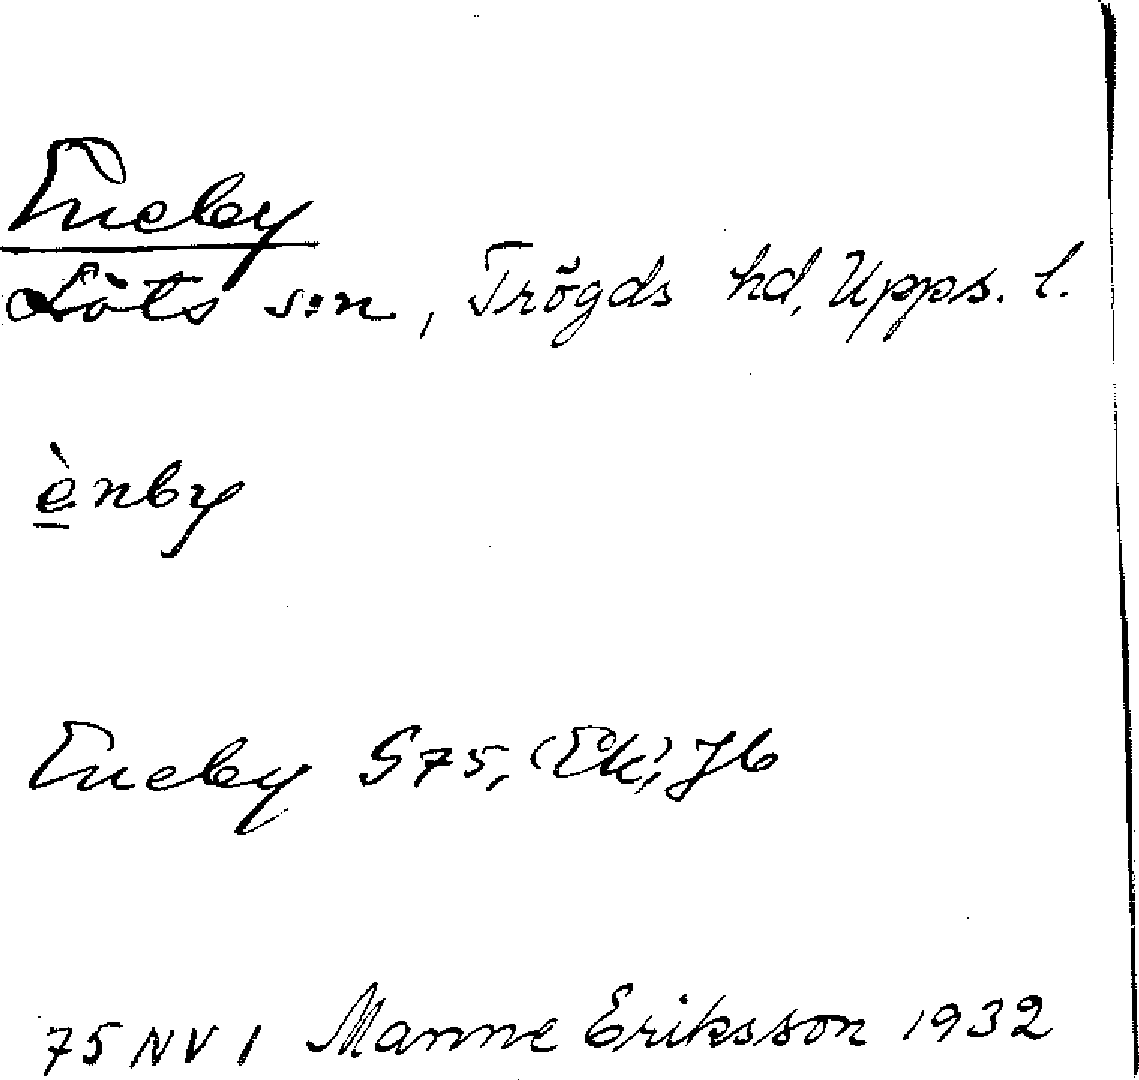 Eneby
Löts s:n, Trögds hd, Upps. l.
ènby
Eneby S75, (Ek), Jb
75 NV 1 Manne Eriksson 1932